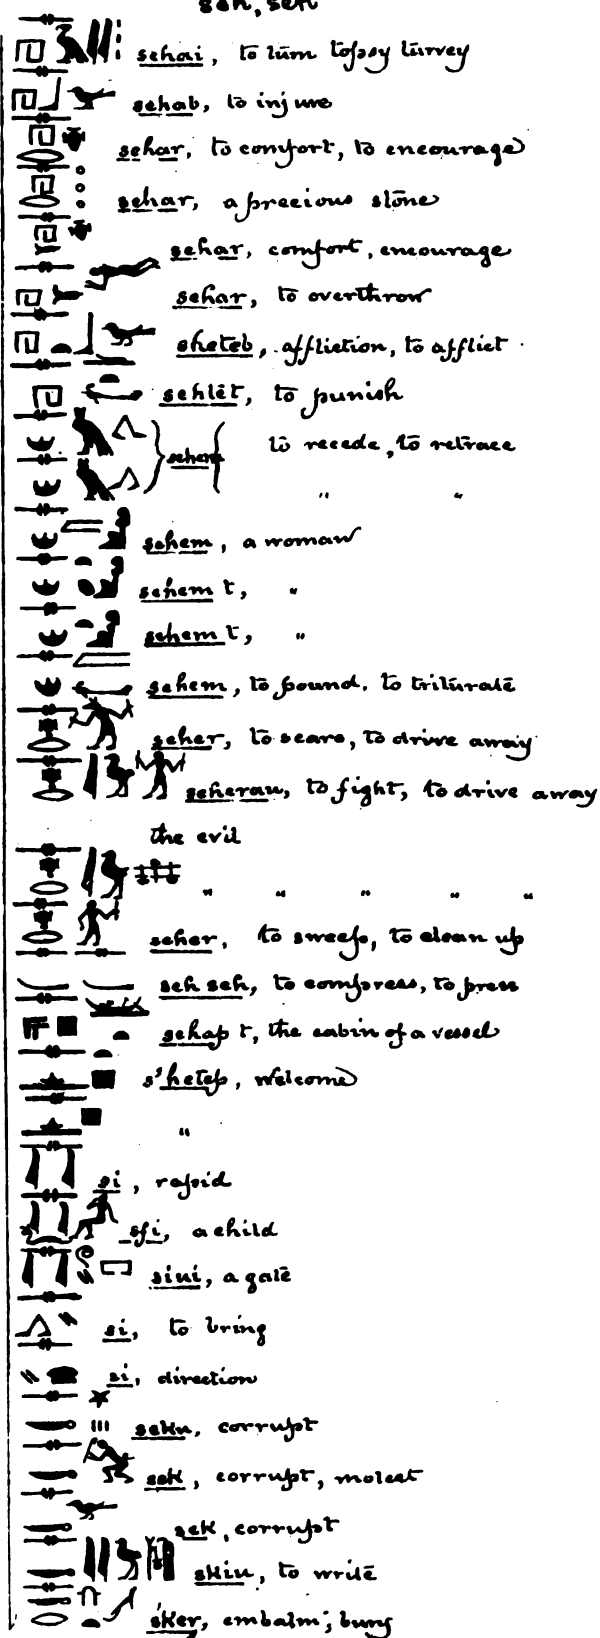 seh, seh
sehai, to turn topsy turvey
sehab, to injure
sehar, to comfort, to encourage
sehar, a precious stone
sehar, comfort, encourage
sehar, to overthrow
sheteb, affliction, to afflict.
sehtet, to punish
sehem to recede, to retrace
" "
sehem, a woman
sehem t, "
sehem t, "
sehem, to pound, to triturate
seher, to scare, to drive away
seherau, to fight, to drive away
the evil
" " " " "
seher, to sweep, to clean up
seh seh, to compress, to press
sehap t, the cabin of a vessel
s'hetep, welcome
"
si, rapid
sfi, a child
sini, a gate
si, to bring
si, direction
seku, corrupt
sek, corrupt, molest
sek, corrupt
skiu, to write
s'ker, embalm, bury